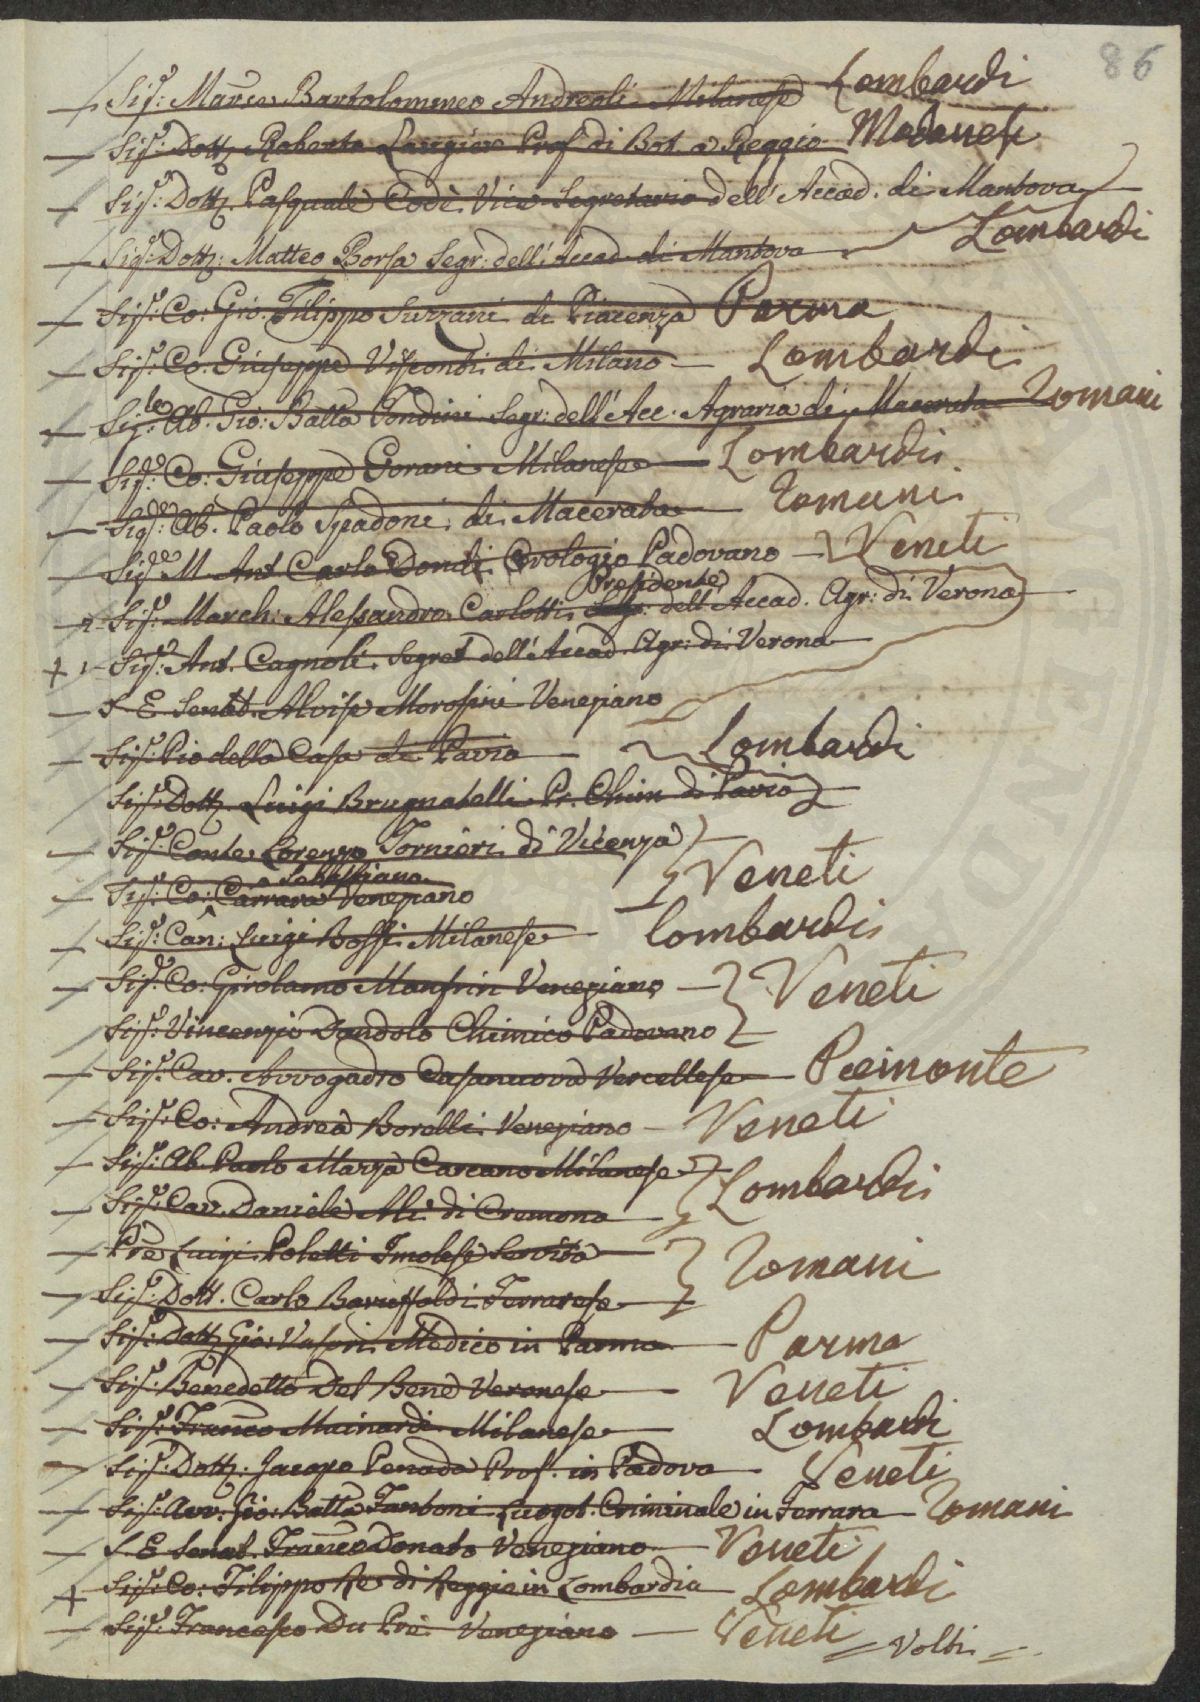 86
Sig.r March. Bartolomeo Andreoli Milanese Lombardi
Sig.r Dott. Roberto Laugier Prof. di Bot. a Reggio Modanesi
Sig.r Dott. Pasquale Codè Vice Segretario dell'Accad. di Mantova
Sig.r Dott.: Matteo Borsa Segr: dell'Accad. di Mantova Lombardi
Sig.r Co: Gio. Filippo di Piacenza Parma
Sig.r Co: Giuseppe Visconti di Milano Lombardi
Sig.r Ab. Gio: Batta Segr: dell'Acc. Agraria di Macerata Romani
Sig.r Co: Giuseppe Gorani Milanese Lombardi
Sig.r Ab. Paolo Spadoni di Macerata Romani
Sig.r M. Ant Carlo Dondi Orologio Padovano Veneti
Presidente
2 Sig.r March: Alessandro Carlotti dell'Accad. Agr: di Verona
+ 1 Sig.r Ant. Cagnoli Segret dell'Accad. Agr: di Verona
S. E. Senat. Alvise Morosini Veneziano
Sig.r Pio della Casa di Pavia Lombardi
Sig.r Dott. Luigi Brugnatelli Pr. Chim di Pavia
Sig.r Conte Lorenzo Tornieri di Vicenza
Sebastiano
Sig.r Co: Carrara Veneziano Veneti
Sig.r Can: Luigi Bossi Milanese Lombardi
Sig.r Co: Girolamo Manfrin Veneziano Veneti
Sig.r Vincenzio Dandolo Chimico Padovano
Sig.r Cav. Avvogadro Casanuova Vercellese Piemonte
Sig.r Co: Andrea Borelli Veneziano Veneti
Sig.r Ab. Paolo Carcano Milanese Lombardi
Sig.r Cav. Daniele Alì di Cremona
Pre Luigi Poletti Imolese Servita Romani
Sig.r Dott. Carlo Baruffaldi Ferrarese
Sig.r Dott. Gio: Medico in Parma Parma
Sig.r Benedetto Del Bene Veronese Veneti
Sig.r Franco Mainardi Milanese Lombardi
Sig.r Dott. Jacopo Penada Prof. in Padova Veneti
Sig.r Avv. Gio: Batta Zanboni Luogot. Criminale in Ferrara Romani
S. E. Senat. Franco Donato Veneziano Veneti
+ Sig.r Co: Filippo Re di Reggio in Lombardia Lombardi
Sig.r Francesco Du Prè Veneziano Veneti
Volti